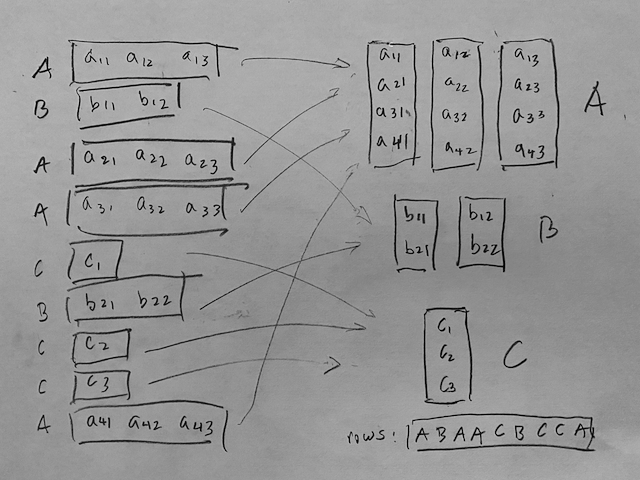 A a11 a12 a13
B b11 b12
A a21 a22 a23
A a31 a32 a33
C c1
B b21 b22
C c2
C c3
A a41 a42 a43
a11 a12 a13
a21 a22 a23
a31 a32 a33
a41 a42 a43
A
b11 b12
b21 b22
B
c1
c2
c3
C
rows: A B A A C B C C A